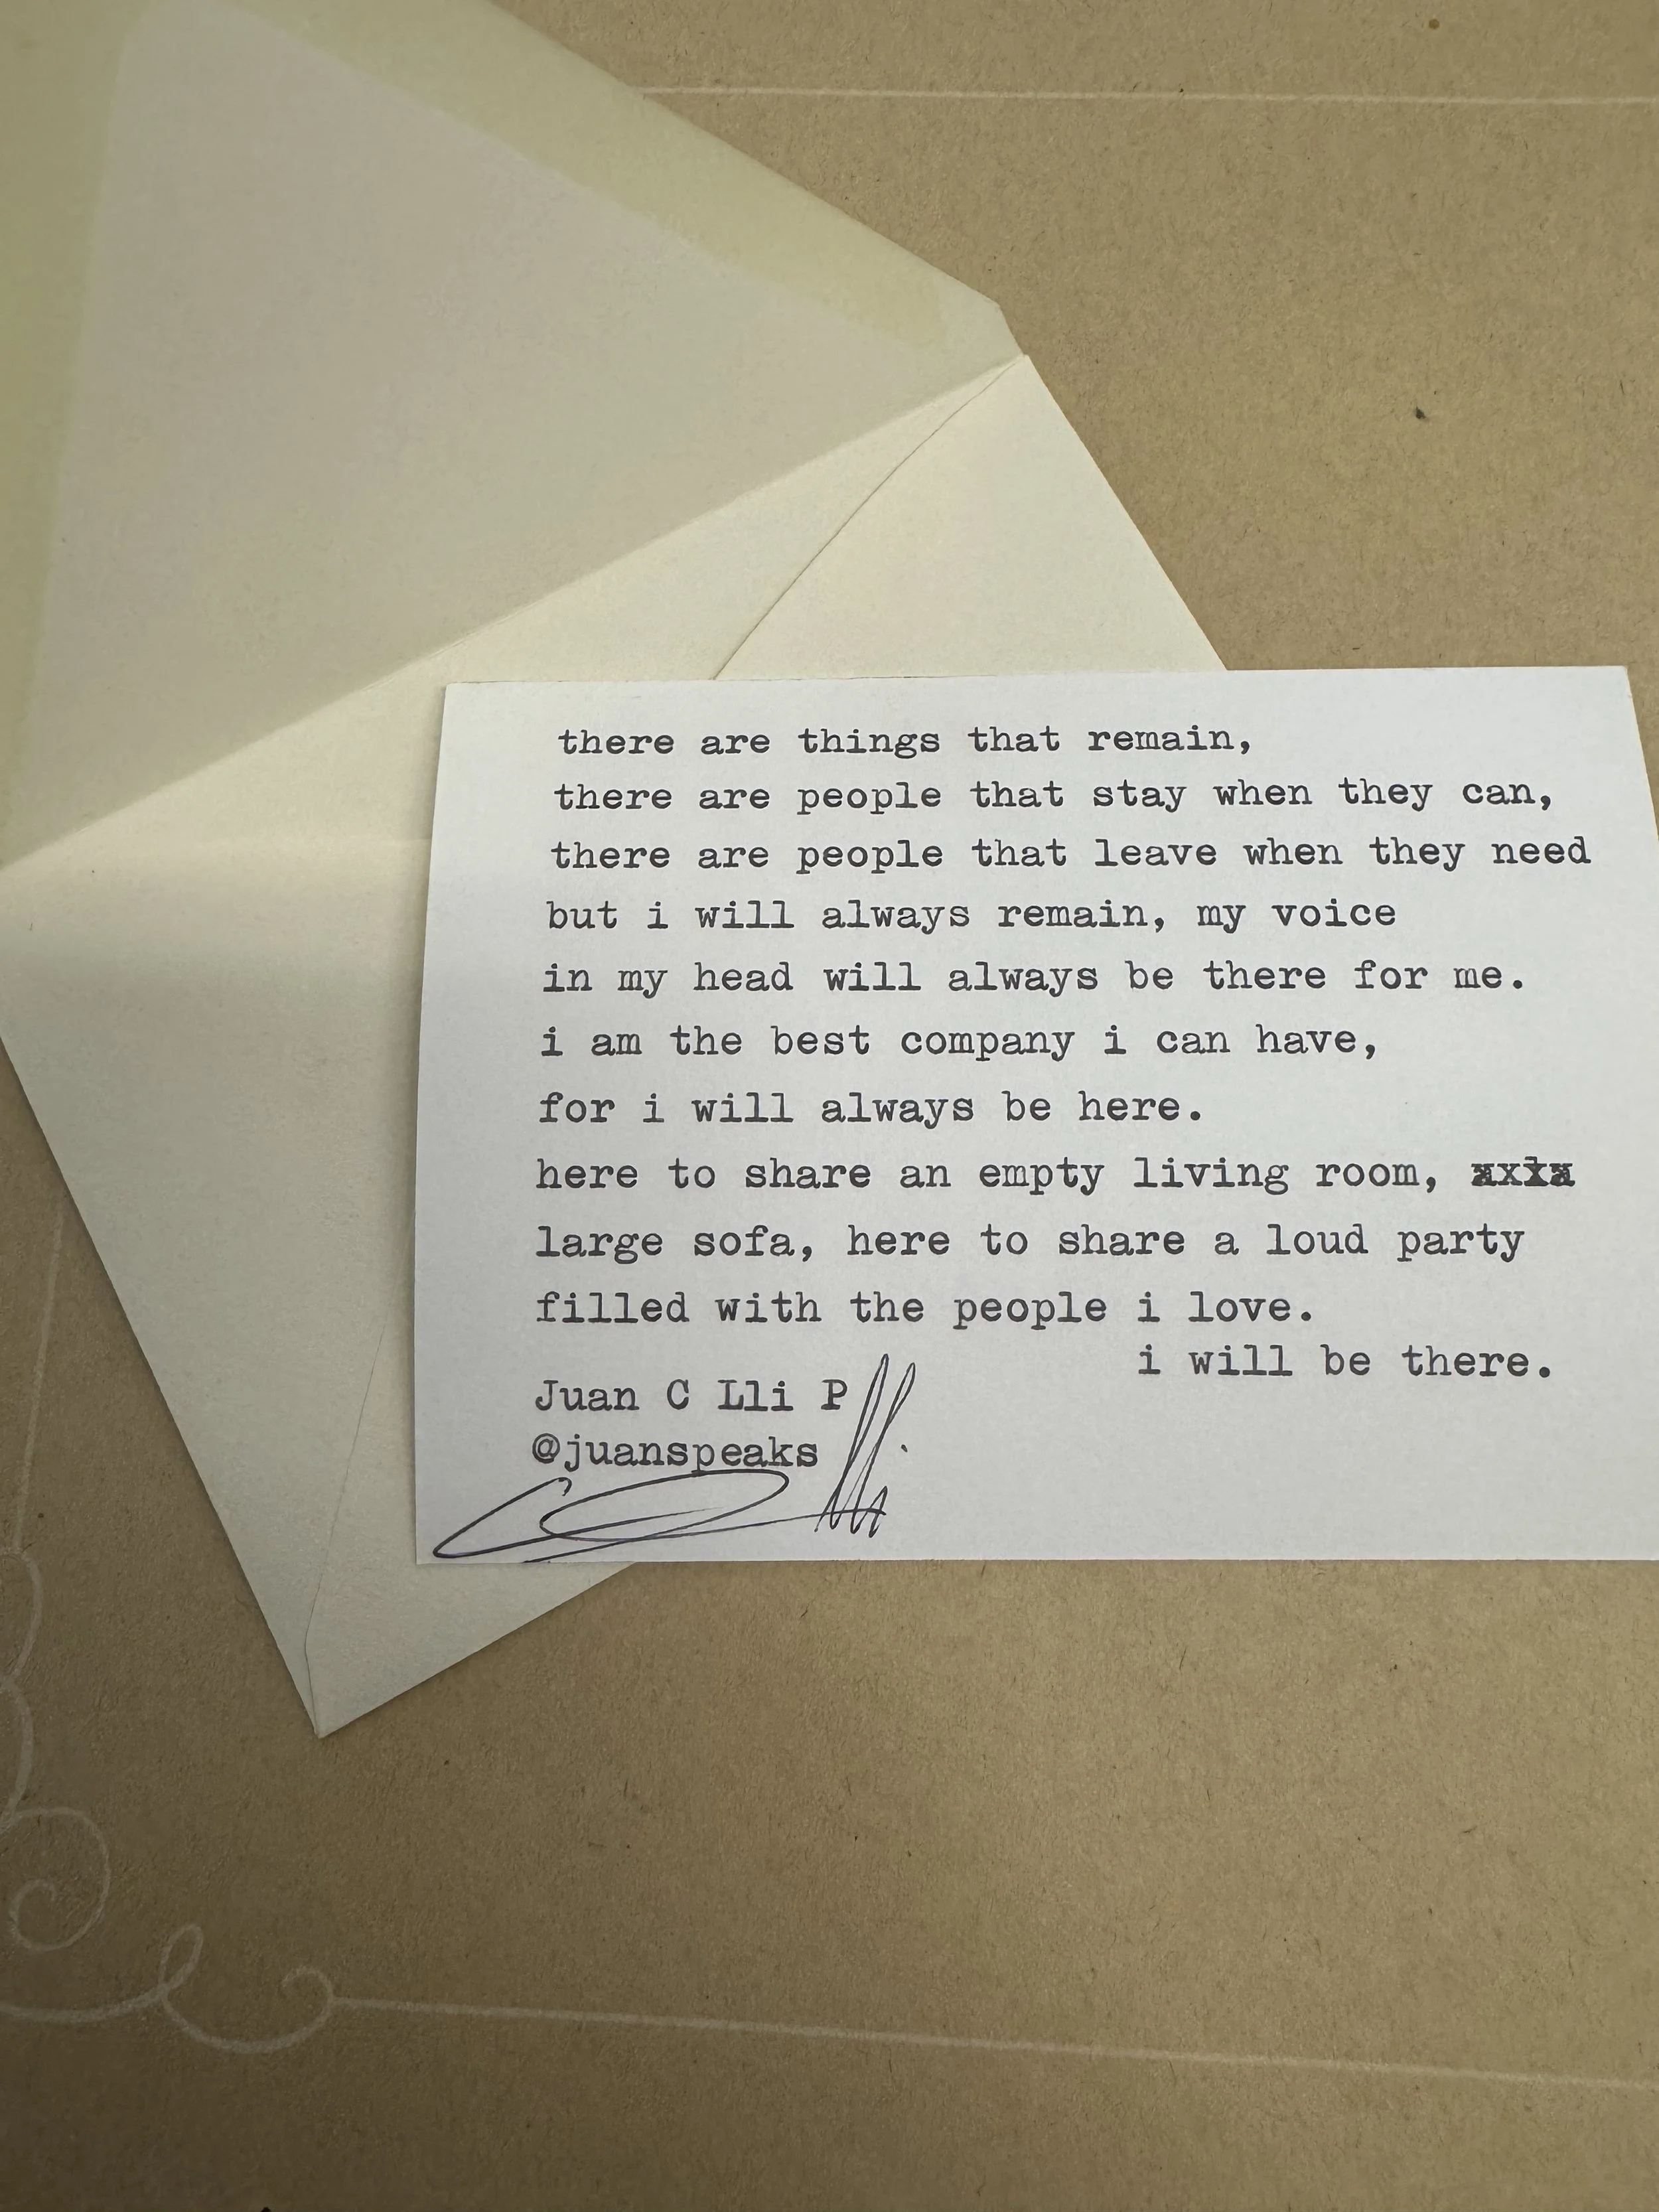 there are things that remain,
there are people that stay when they can,
there are people that leave when they need
but i will always remain, my voice
in my head will always be there for me.
i am the best company i can have,
for i will always be here.
here to share an empty living room,
large sofa, here to share a loud party
filled with the people i love.
i will be there.
Juan C Lli P
@juanspeaks